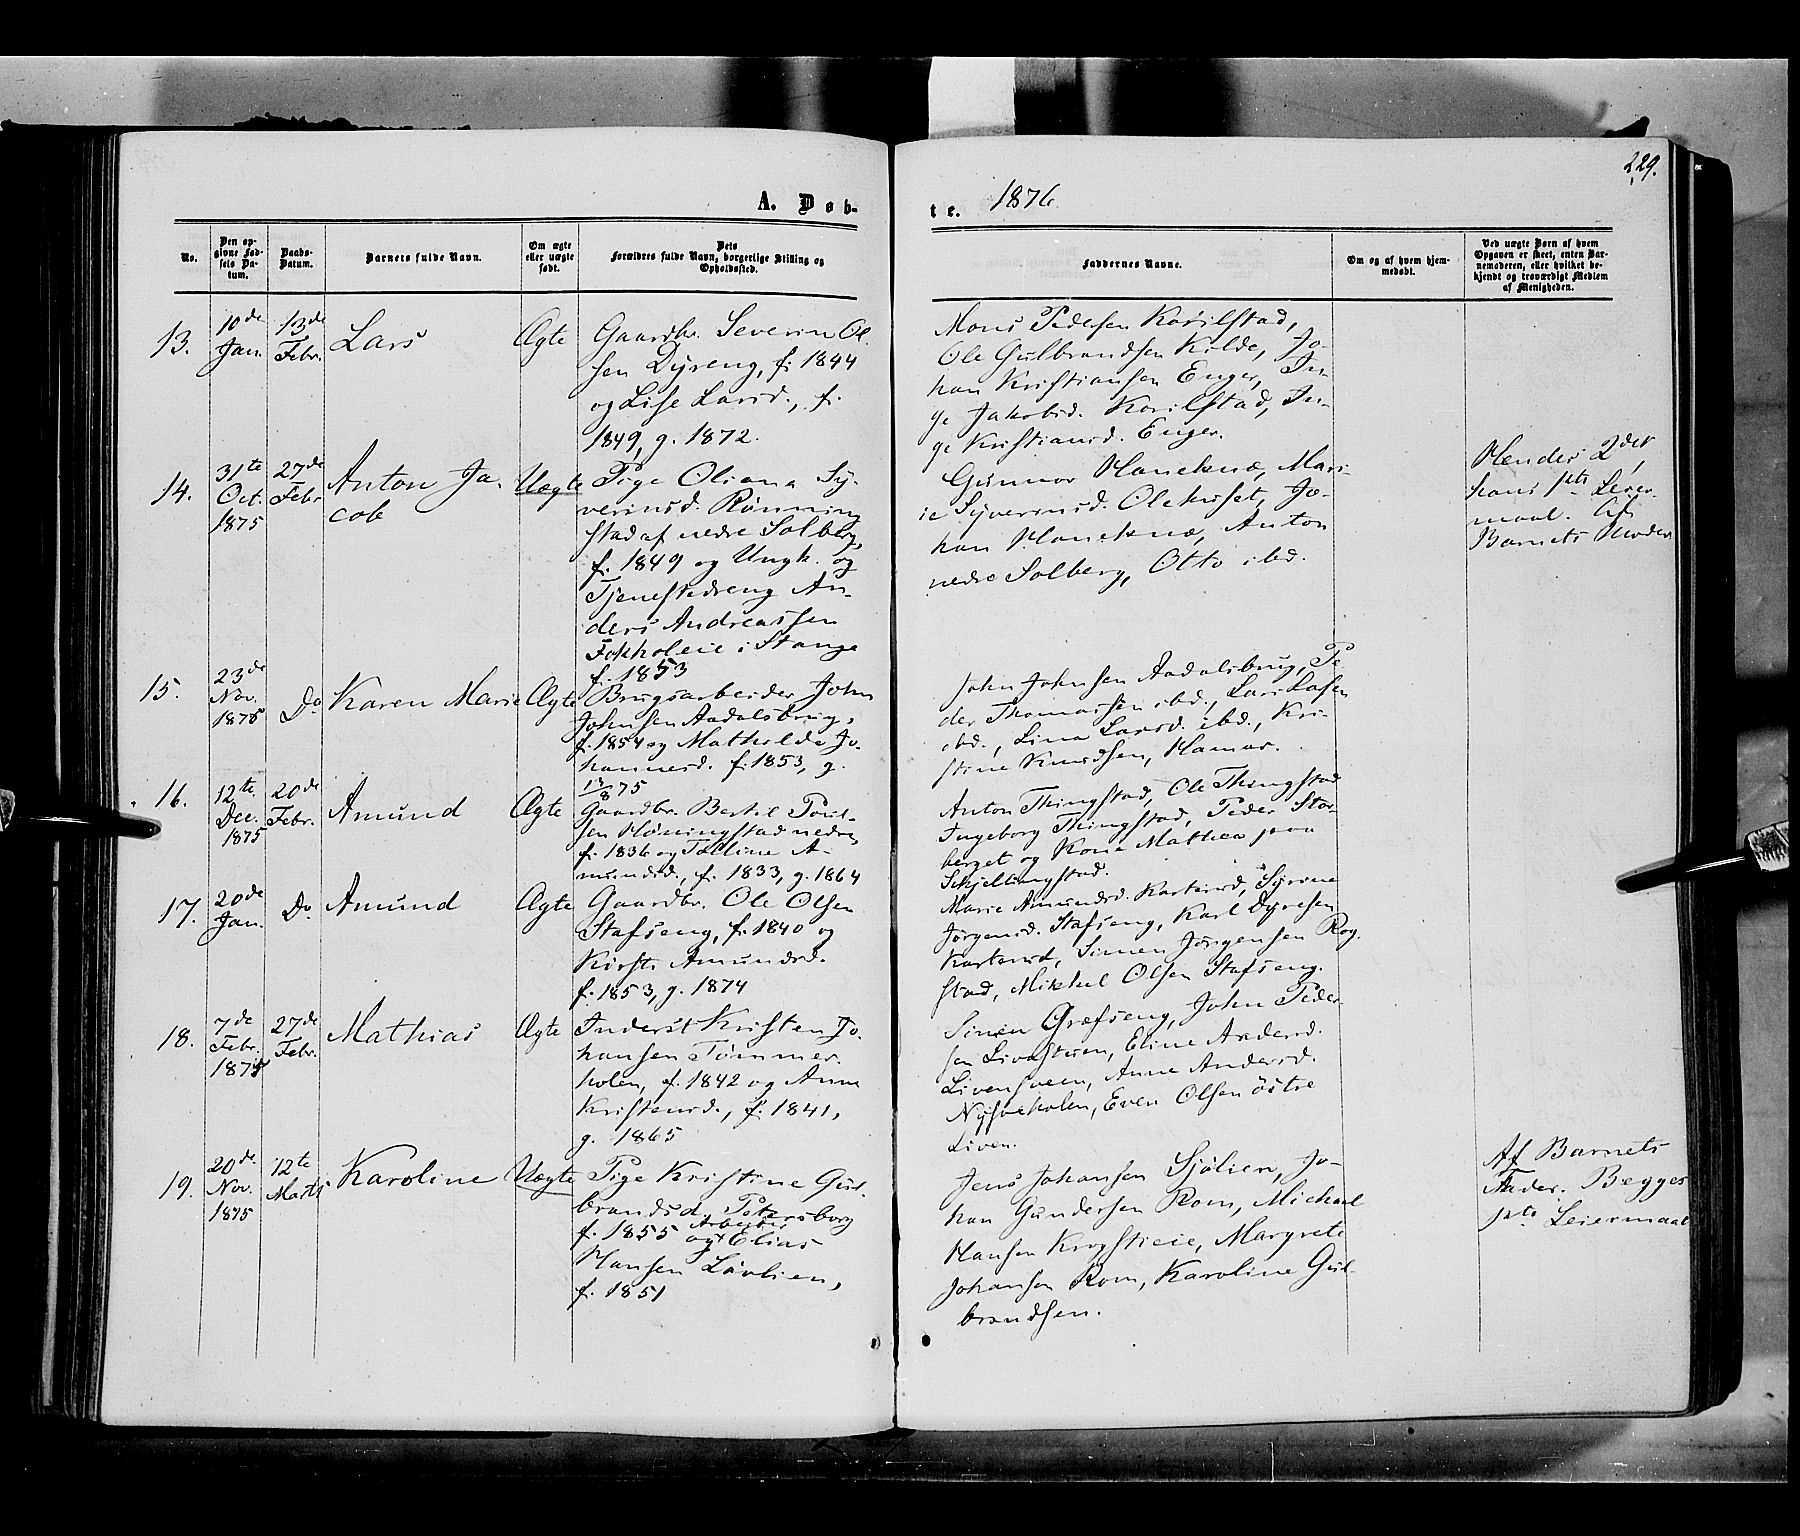 229.
A. Døb-
te. 1876
No.
Den op-
givne Fød-
sels Da-
tum.
Daabs-
Datum.
Barnets fulde Navn.
Om ægte
eller uægte
født.
Dets
Forældres fulde Navn, borgerlige Stilling og
Opholdssted.
Faddernes Navne.
Om og af hvem hjem-
medøbt.
Ved uægte Børn af hvem
Opgaven er skeet, enten Bar-
nemoderen, eller hvilket be-
kjendt og troværdigt Medlem
af Menigheden.
13.
10de
Jan.
13de
Febr.
Lars
Ægte
Gaardbr. Severin Ol
sen Dyreng, f. 1844
og Lise Larsd., f.
1849, g. 1872.
Mons Pedersen Korilstad,
Ole Gulbrandsen Kilde, Jo-
han Kristiansen Enger, In-
ge Jakobsd. Korilstad, In-
ge Kristiansd. Enger.
14.
31te
Oct.
1875
27de
Febr
Anton Ja-
cob
Uægte
Pige Oliana Sy-
verinsd. Rønning
stad af nedre Solberg,
f. 1849 og Ungk. og
Tjenestedreng An-
ders Andreassen
i Stange
f. 1853
Gunnor Haneknæ, Mari-
ie Syverinsd. Olehuset, Jo-
han Haneknæ, Anton
nedre Solberg, Otto ibd.
Hendes 2det,
hans 1ste Leier-
maal. Af
Barnets Moder
15.
23de
Nov.
1875
Do
Karen Marie
Ægte
Brugsarbeider John
Johnsen Aadalsbrug,
f. 1854 og Mathilde Jo-
hannesd. f. 1853, g.
13/8 75
John Johnsen Aadalsbrug, Pe
der Thomassen ibd., Lars Larsen
ibd., Lina Larsd. ibd., Kri-
stine Knudsen, Hamar.
16.
12te
Dec.
1875
20de
Febr.
Amund
Ægte
Gaardbr. Bertel Poul-
sen Høningstad nedre
f. 1836 og A-
mundsd., f. 1833, g. 1864
Anton Thingstad, Ole Thingstad
Ingeborg Thingstad, Peder Stor-
berget og Mathea paa
Skjellangstad.
17.
20de
Jan.
Do
Amund
Ægte
Gaardbr. Ole Olsen
Stafseng, f. 1840 og
Kirsti Amundsd.
f. 1853, g. 1874
Marie Amundsd. Karterud, Syrene
Jørgensd. Stafseng, Karl Dyresen
Karterud, Simen Jørgensen Rog-
stad, Mikkel Olsen Stafseng.
18.
7de
Febr.
1875
27de
Febr.
Mathias
Ægte
Inderst Kristen Jo-
hansen Tømmer-
holen, f. 1842 og Anne
Kristensd., f. 1841,
g. 1865
Simen Græfseng, John Peder
sen Eline Andersd.
Anne Andersd.
Even Olsen østre
Liven.
19.
20de
Nov.
1875
12te
Marts
Karoline
Uægte
Pige Kristine Gul-
brandsd. Petersborg
f. 1855 og Arbeider Elias
Hansen Løvlien,
f. 1851
Jens Johansen Sjølien, Jo-
han Gundersen Rom, Michael
Hansen Margrete
Johansen Rom, Karoline Gul-
brandsen.
Af Barnets
Fader. Begges
1ste Leiermaal